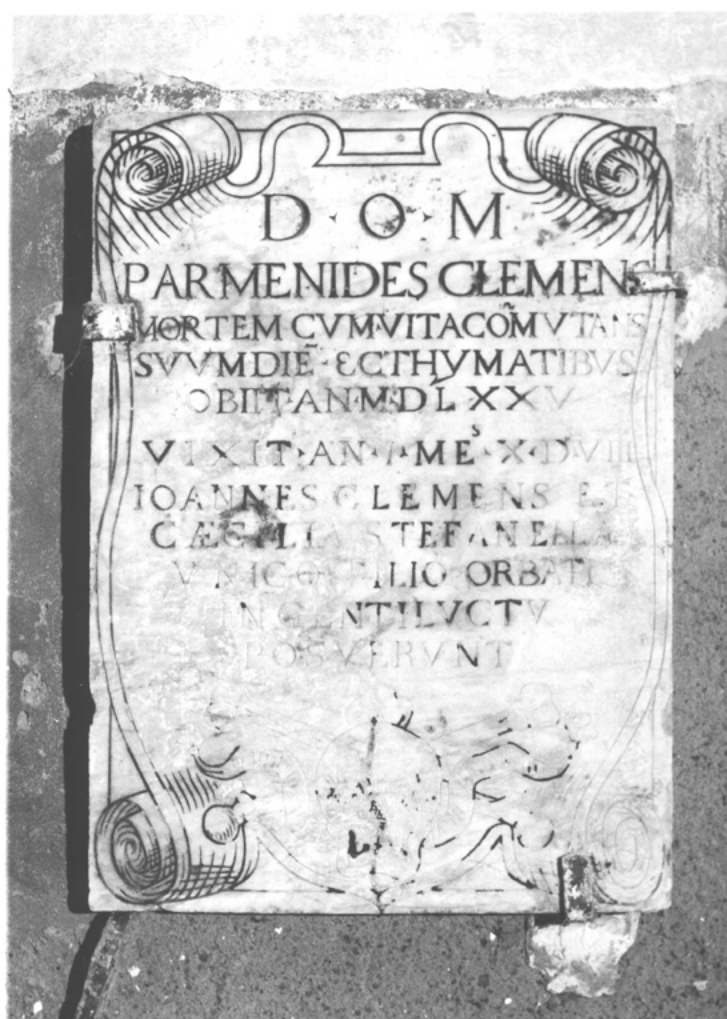 D · O · M
PARMENIDES CLEMENS
MORTEM CVM·VITA COM̃VTANS
SVVM DIẼ · ECTHYMATIBVS
OBIIT·AN·M·D·LXXV
VIXIT·AN·7·MEˢ·X·D·VIII
IOANNES CLEMENS ET
CÆCILIA STEFANELLA
VNICO FILIO ORBATI
INGENTI LVCTV
POSVERVNT